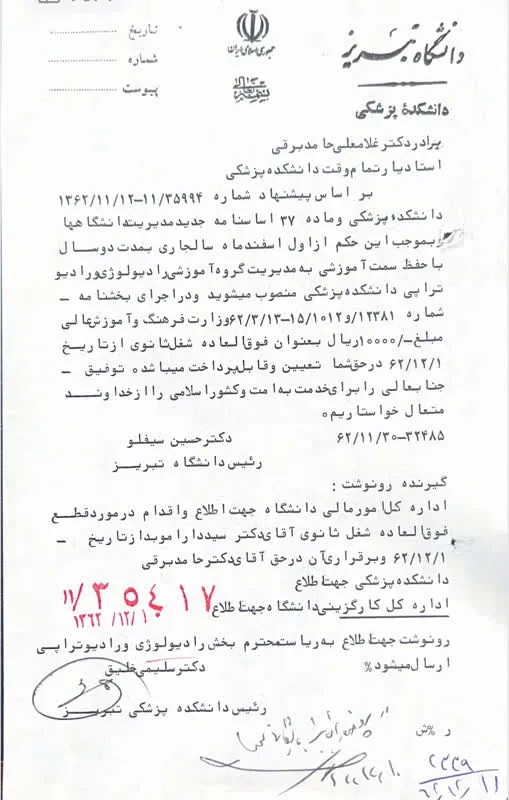 جمهوری اسلامی ایران
دانشگاه تبریز
دانشکدهٔ پزشکی
بسمه تعالی
تاریخ ....................
شماره ....................
پیوست ....................
برادر دکتر غلامعلی حامدبرقی
استادیار تمام وقت دانشکده پزشکی
بر اساس پیشنهاد شماره ۱۱/۳۵۹۹۴-۱۳۶۲/۱۱/۱۲
دانشکده پزشکی وماده ۳۷ اساسنامه جدید مدیریت دانشگاهها
وبموجب این حکم ازاول اسفندماه سالجاری بمدت دوسال
با حفظ سمت آموزشی به مدیریت گروه آموزشی رادیولوژی ورادیو
تراپی دانشکده پزشکی منصوب میشوید ودراجرای بخشنامه –
شماره ۱۲۳۸۱/و/۱۵/۱۰۱۲-۶۲/۳/۱۳ وزارت فرهنگ وآموزش عالی
مبلغ -/۱۰۰۰۰ ریال بعنوان فوق العاده شغل ثانوی از تاریخ
۶۲/۱۲/۱ درحق شما تعیین وقابل پرداخت میباشد، توفیق –
جنابعالی را برای خدمت به امت وکشور اسلامی را از خداوند
متعال خواستاریم.
۶۲/۱۱/۳۰-۳۲۴۸۵
دکتر حسین سیفلو
رئیس دانشگاه تبریز
گیرنده رونوشت :
اداره کل امور مالی دانشگاه جهت اطلاع واقدام درمورد قطع
فوق العاده شغل ثانوی آقای دکتر سید دارا موید از تاریخ –
۶۲/۱۲/۱ وبرقراری آن درحق آقای دکتر حامدبرقی
دانشکده پزشکی جهت اطلاع
اداره کل کارگزینی دانشگاه جهت اطلاع
۱۱/۳۵۴۱۷
۱۳۶۲/۱۲/۱۰
رونوشت جهت اطلاع به ریاست محترم بخش رادیولوژی ورادیوتراپی
ارسال میشود%
دکتر سلیمی خلیق
رئیس دانشکده پزشکی تبریز
ر %ش
۲۳۳۹